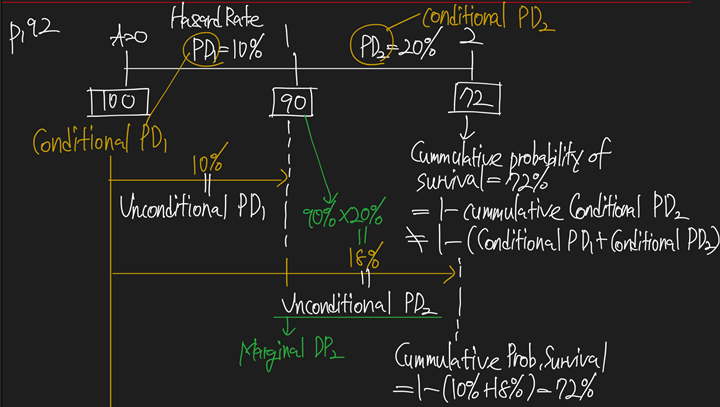 P.192
Hazard Rate
Conditional PD2
A=0
1
2
PD1=10%
PD2=20%
100
90
72
Conditional PD1
10%
Unconditional PD1
90%×20%
18%
Unconditional PD2
Marginal DP2
Cummulative probability of
survival=72%
=1-cummulative Conditional PD2
≠1-(Conditional PD1+Conditional PD2)
Cummulative Prob.Survival
=1-(10%+18%)=72%